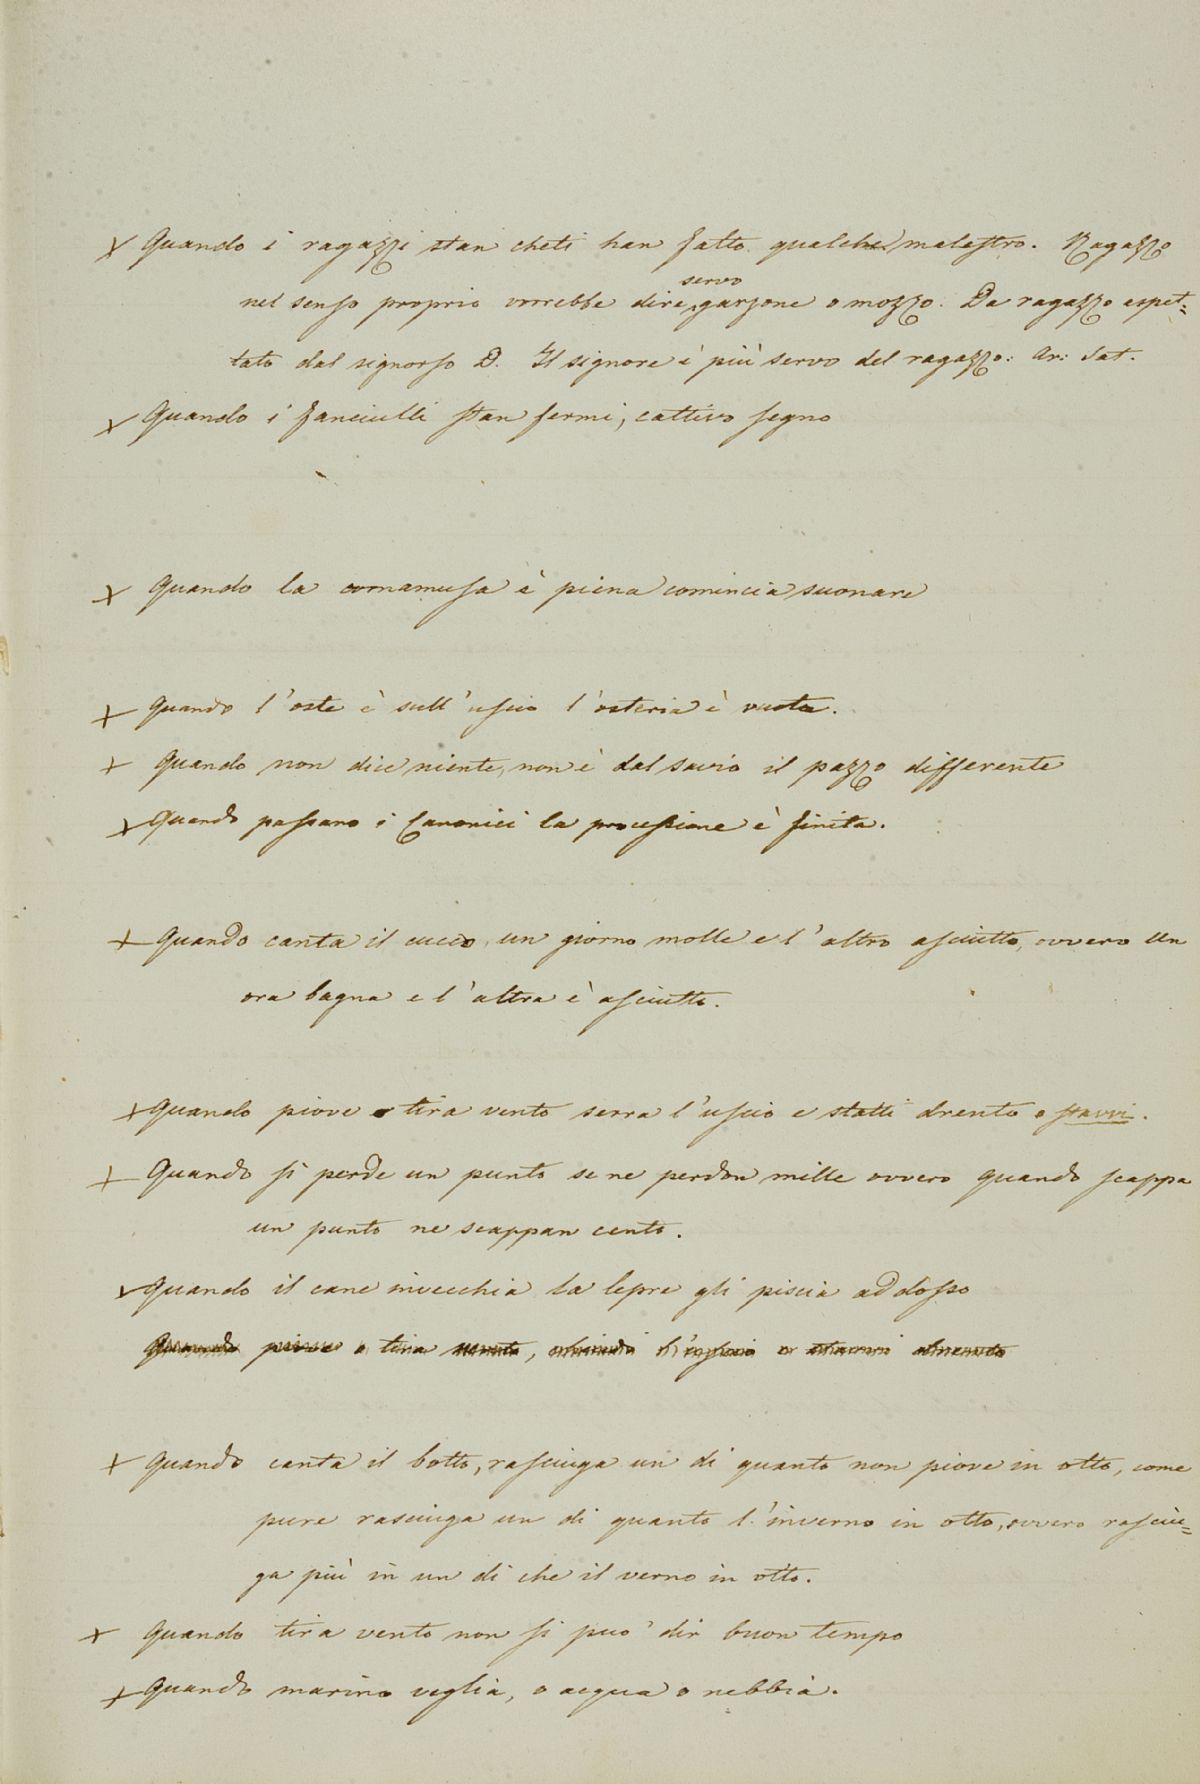 x Quando i ragazzi stan cheti han fatto qualche malestro. Ragazzo
servo
nel senso proprio vorrebbe dire garzone o mozzo. Da ragazzo aspet=
tato dal signorso D. Il signore è più servo del ragazzo: Ar: Sat.
x Quando i fanciulli stan fermi, cattivo segno
x Quando la cornamusa è piena comincia suonare
x Quando l'oste è sull'uscio l'osteria è vuota.
x Quando non dice niente, non è dal savio il pazzo differente
x Quando passano i Canonici la processione è finita.
x Quando canta il cucco, un giorno molle e l'altro asciutto, ovvero un
ora bagna e l'altra è asciutto.
x Quando piove o tira vento serra l'uscio e statti drento o stavvi.
x Quando si perde un punto se ne perdon mille ovvero quando scappa
un punto ne scappan cento.
x Quando il cane invecchia la lepre gli piscia addosso
Quando piove o tira vento, chiudi l'uscio e stavvi drento
x Quando canta il botto, rasciuga un di quanto non piove in otto, come
pure rasciuga un di quanto l'inverno in otto, ovvero rasciu=
ga più in un di che il verno in otto.
x Quando tira vento non si può dir buon tempo
x Quando marino veglia, o acqua o nebbia.